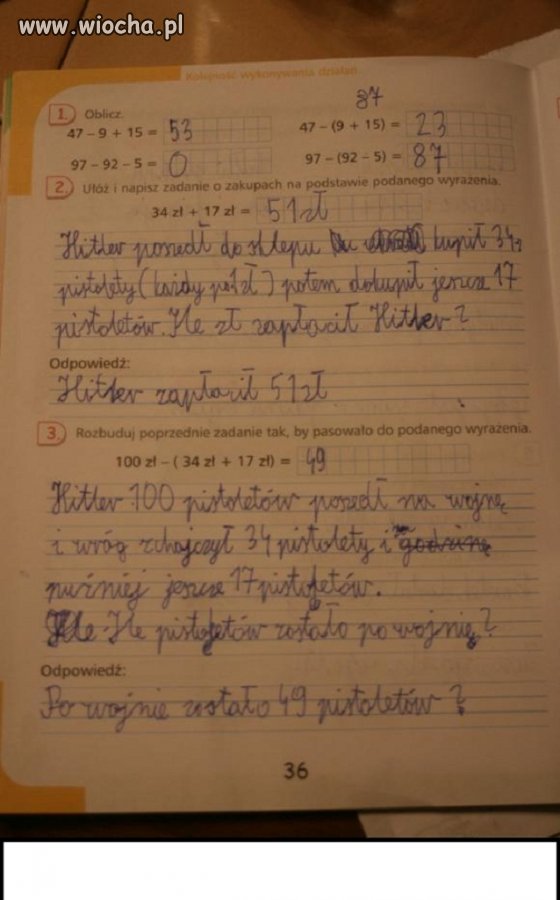 www.wiocha.pl
Kolejność wykonywania działań
37
1. Oblicz.
47 – 9 + 15 = 53 47 – (9 + 15) = 23
97 – 92 – 5 = 0 97 – (92 – 5) = 87
2. Ułóż i napisz zadanie o zakupach na podstawie podanego wyrażenia.
34 zł + 17 zł = 51 zł
Hitler poszedł do sklepu kupił 34
pistolety (każdy po 1 zł) potem dokupił jeszcze 17
pistoletów. Ile zł zapłacił Hitler?
Odpowiedź:
Hitler zapłacił 51 zł
3. Rozbuduj poprzednie zadanie tak, by pasowało do podanego wyrażenia.
100 zł – ( 34 zł + 17 zł) = 49
Hitler 100 pistoletów poszedł na wojnę
i wróg zhajczył 34 pistolety i godzinę
puźniej jeszcze 17 pistoletów.
Ile pistoletów zostało po wojnię?
Odpowiedź:
Po wojnie zostało 49 pistoletów?
36